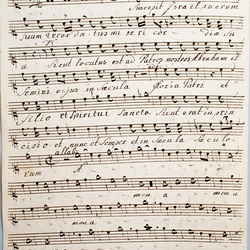 Suscepit Israel puerum
suum recordatus mi se ri cor diæ su
æ Sicut locutus est ad Patres nostros Abraham et
semini ejus in sæcula Gloria Patri et
Filio et Spiritui Sancto Sicut erat in prin
cipio et nunc et semper et in sæcula sæculo
rum A
men a men a
men a